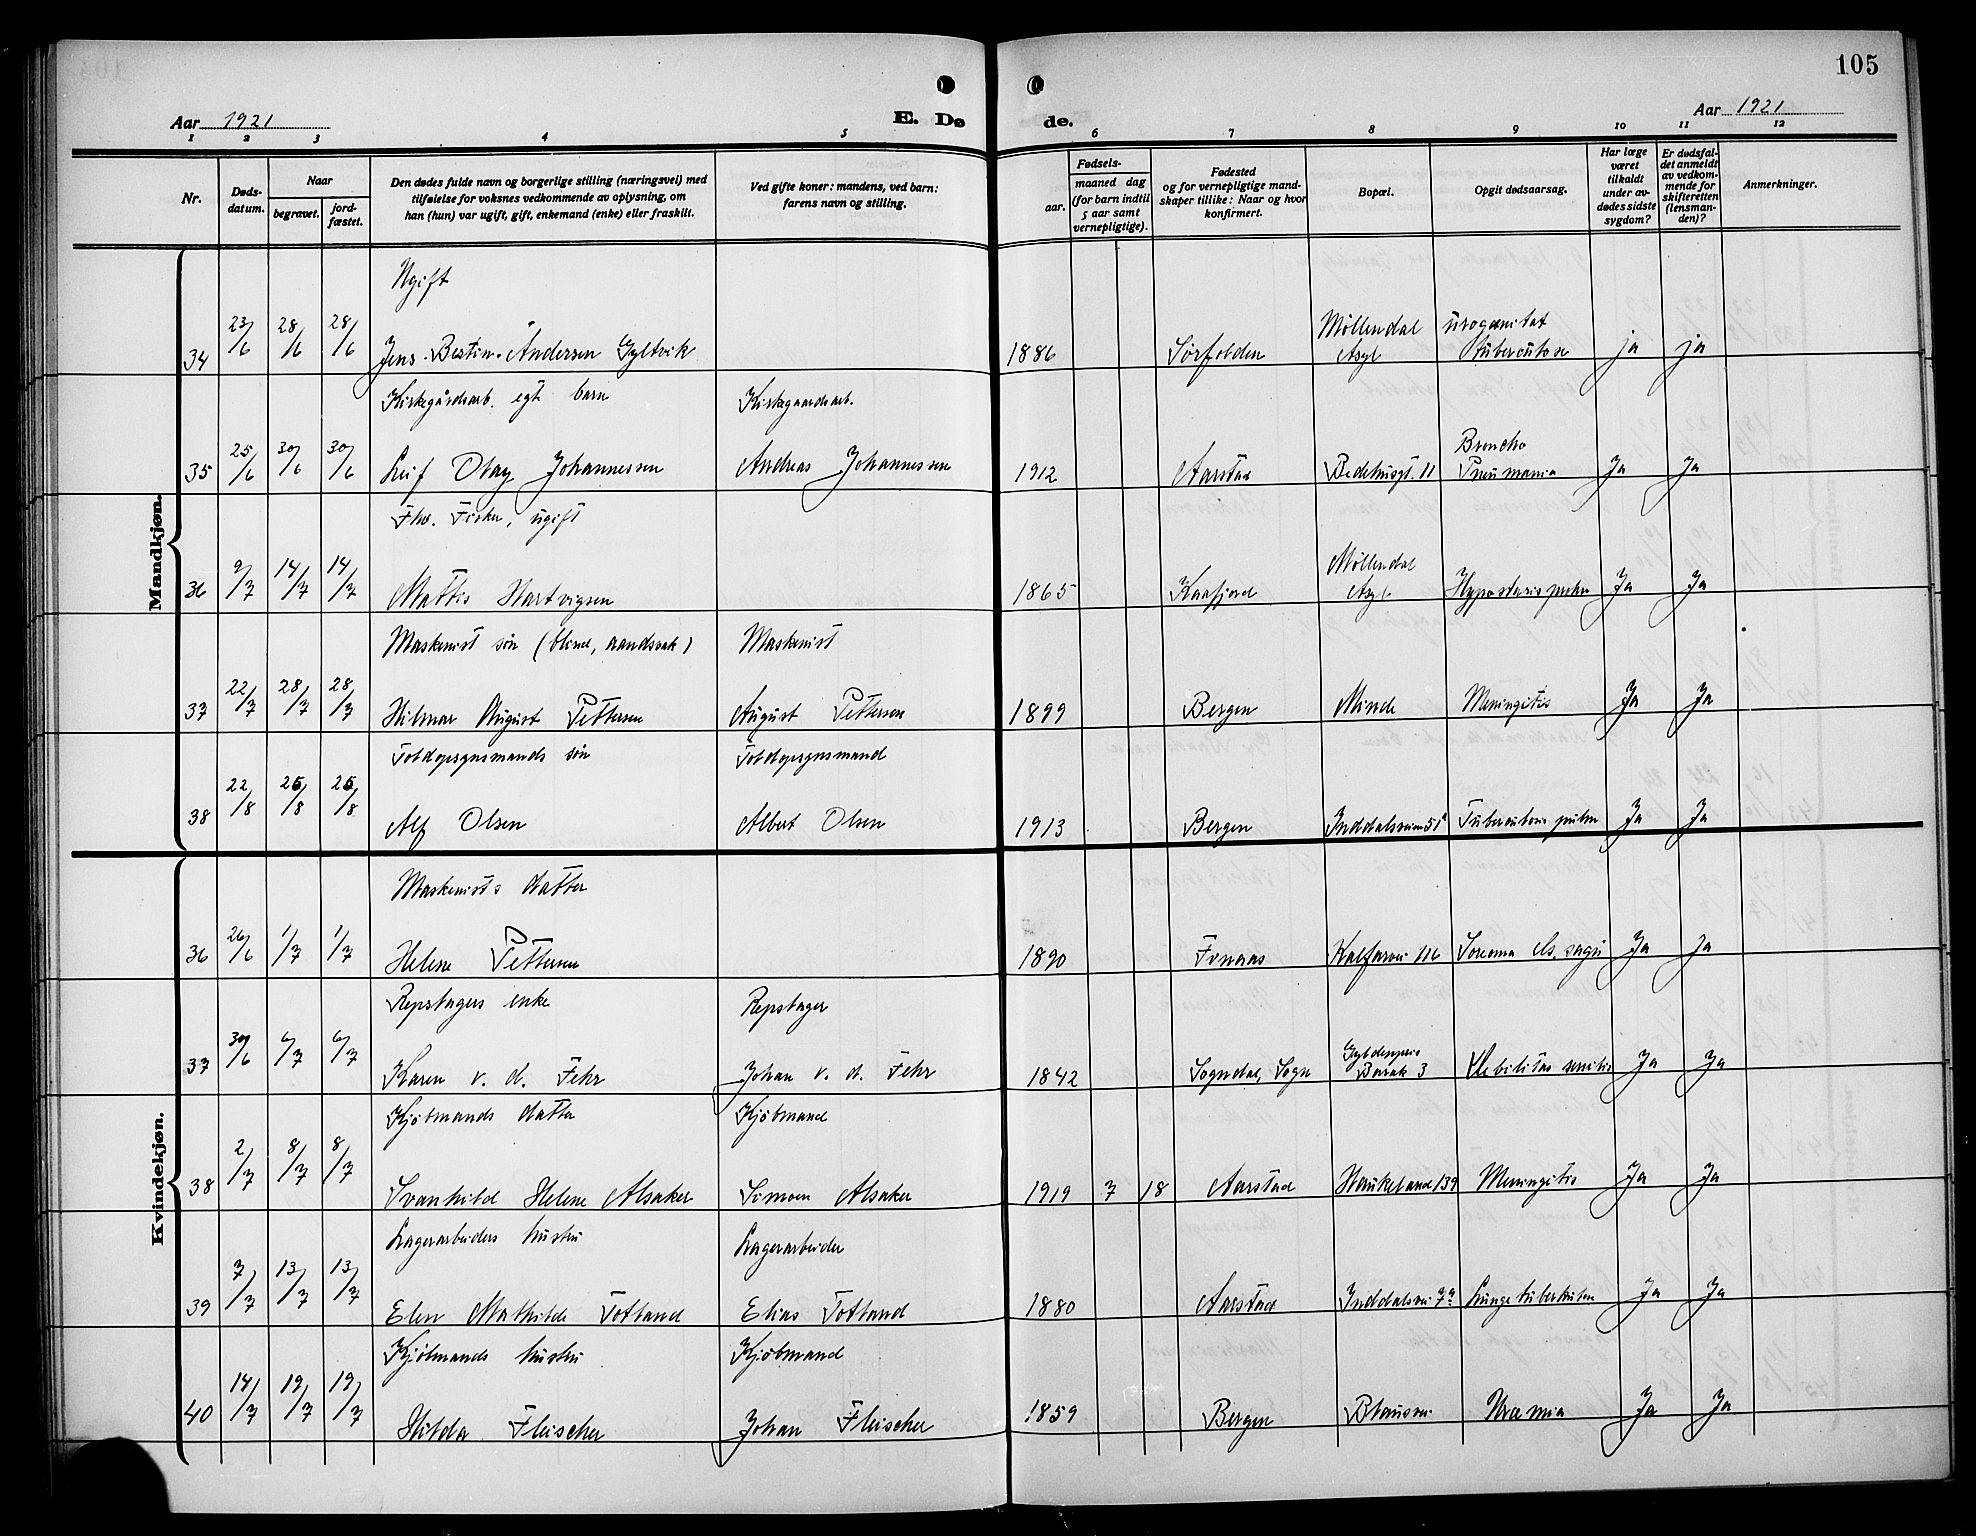 105
Aar 1921
E. Dø
de.
Aar 1921
1 2 3 4 5 6 7 8 9 10 11 12
Nr.
Døds-
datum.
Naar
begravet.
jord-
fæstet.
Den dødes fulde navn og borgerlige stilling (næringsvei) med
tilføielse for voksnes vedkommende av oplysning, om
han (hun) var ugift, gift, enkemand (enke) eller fraskilt.
Ved gifte koner: mandens, ved barn:
farens navn og stilling.
Fødsels-
aar.
maaned dag
(for barn indtil
5 aar samt
vernepligtige).
Fødested
og for vernepligtige mand-
skaper tillike: Naar og hvor
konfirmert.
Bopæl.
Opgit dødsaarsag.
Har læge
været
tilkaldt
under av-
dødes sidste
sygdom?
Er dødsfal-
det anmeldt
av vedkom-
mende for
skifteretten
(lensman-
den)?
Anmerkninger.
Mandkjøn.
Ugift
23/6 28/6 28/6 Møllendal urogenitat
34 Jens Bestin Andersen Gyltvik 1886 Sørfolden Asyl tuberculose ja ja
Kirkegårdsarb. egt barn Kirkegaardsarb.
25/6 30/6 30/6 Broncho
35 Leif Olay Johannessen Andreas Johannessen 1912 Aarstad Bedehusgt. 11 Pneumania Ja Ja
Fhv. Fisker, ugift
9/7 14/7 14/7 Møllendal
36 Mattis Hartvigsen 1865 Kaafjord Asyl Hypostasis pulm Ja Ja
Maskinist søn (blind, aandsvak) Maskenist
22/7 28/7 28/7
37 Hilmar August Pettersen August Pettersen 1899 Bergen Minde Meningitis Ja Ja
Toldopsynsmands søn Toldopsynsmand
22/8 /8 /8
38 Alf Olsen Albert Olsen 1913 Bergen Inddalsveien 51a Tuberculosis pulm Ja Ja
Kvindekjøn.
Maskenists datter
26/6 1/7 1/7
36 Helene Pettersen 1890 Kalfarvei 116 Ja Ja
Repslagers enke Repslager
30/6 6/7 6/7 Gyldenpris
37 Karen v. d. Fehr Johan v. d. Fehr 1842 Sogndal, Sogn Barak 3 Debilitas senilis Ja Ja
Kjøbmands datter Kjøbmand
2/7 8/7 8/7
38 Svanhild Helene Alsaker Simon Alsaker 1919 7 18 Aarstad Haukeland 139 Meningitis Ja Ja
Lagerarbeiders hustru Lagerarbeider
7/7 13/7 13/7
39 Elen Mathilde Totland Elias Totland 1880 Aarstad Inddalsvei 7a Lungetuberkulos Ja Ja
Kjøbmands hustru Kjøbmand
14/7 19/7 19/7
40 Hilda Fleischer Johan Fleischer 1859 Bergen Blausvei Uræmia Ja Ja